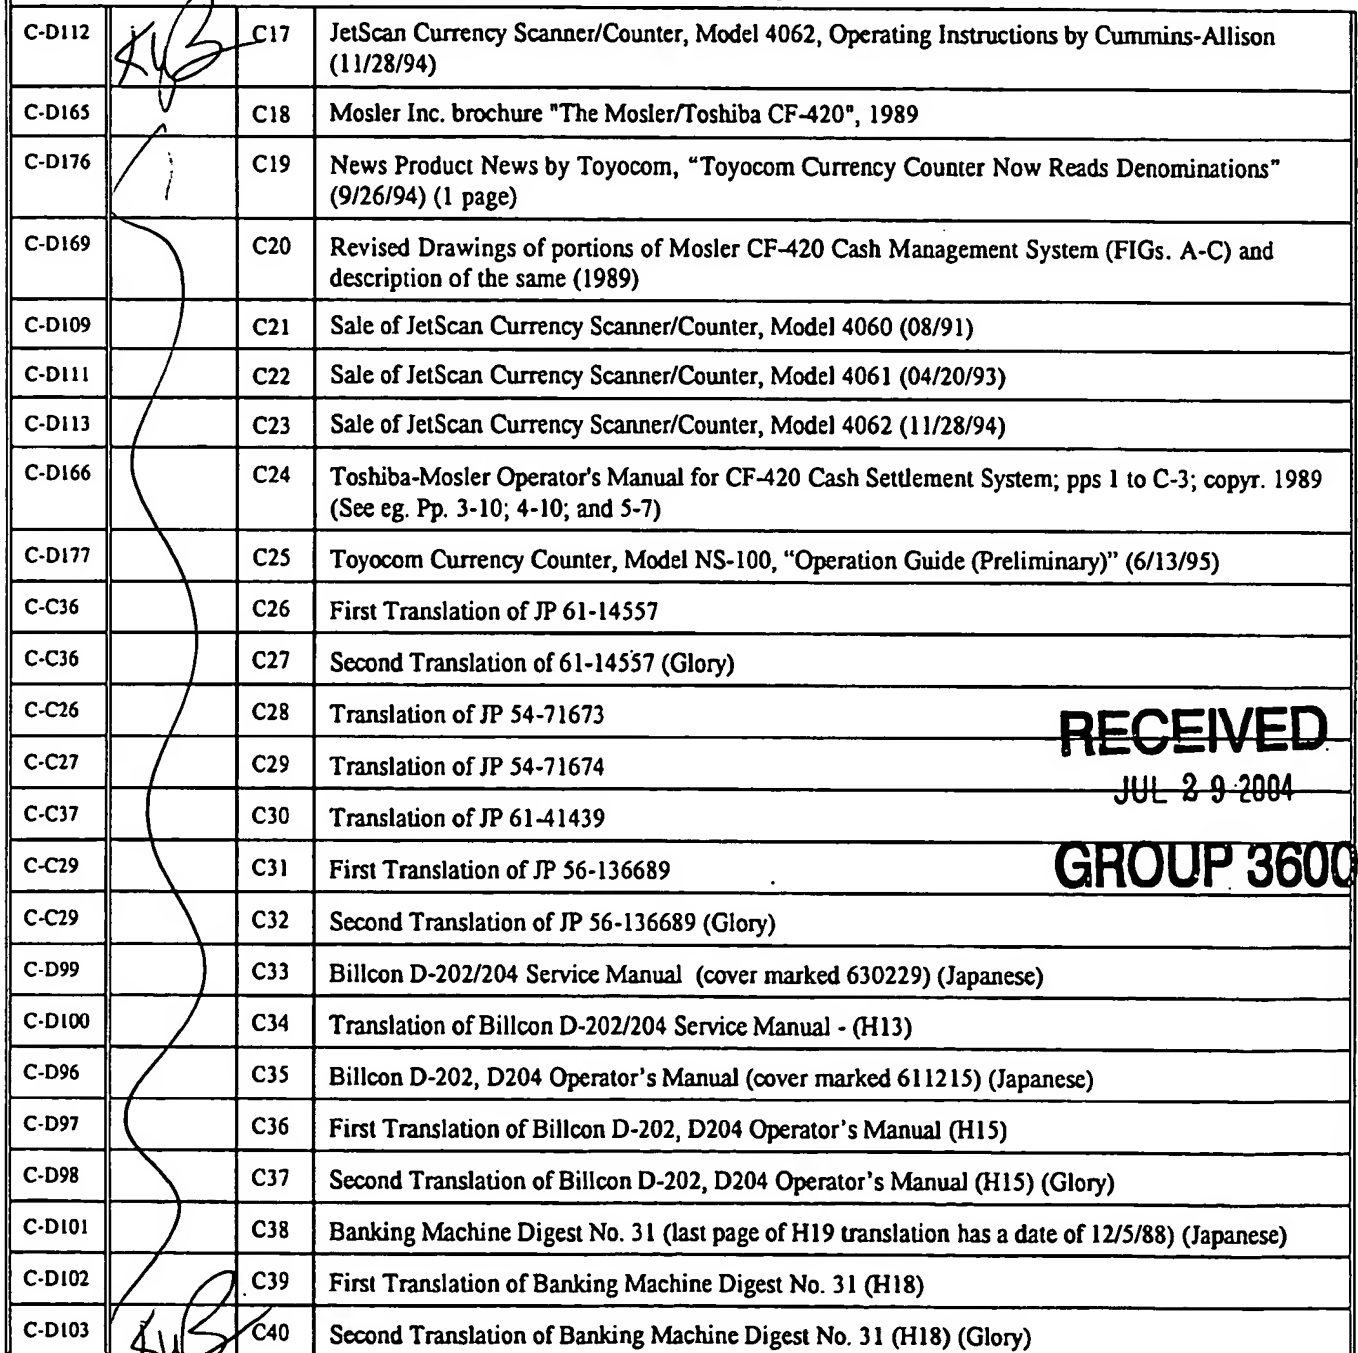 C-D112 KyB C17 JetScan Currency Scanner/Counter, Model 4062, Operating Instructions by Cummins-Allison
(11/28/94)
C-D165 C18 Mosler Inc. brochure "The Mosler/Toshiba CF-420", 1989
C-D176 C19 News Product News by Toyocom, “Toyocom Currency Counter Now Reads Denominations”
(9/26/94) (1 page)
C-D169 C20 Revised Drawings of portions of Mosler CF-420 Cash Management System (FIGs. A-C) and
description of the same (1989)
C-D109 C21 Sale of JetScan Currency Scanner/Counter, Model 4060 (08/91)
C-D111 C22 Sale of JetScan Currency Scanner/Counter, Model 4061 (04/20/93)
C-D113 C23 Sale of JetScan Currency Scanner/Counter, Model 4062 (11/28/94)
C-D166 C24 Toshiba-Mosler Operator's Manual for CF-420 Cash Settlement System; pps 1 to C-3; copyr. 1989
(See eg. Pp. 3-10; 4-10; and 5-7)
C-D177 C25 Toyocom Currency Counter, Model NS-100, “Operation Guide (Preliminary)” (6/13/95)
C-C36 C26 First Translation of JP 61-14557
C-C36 C27 Second Translation of 61-14557 (Glory)
C-C26 C28 Translation of JP 54-71673
RECEIVED
C-C27 C29 Translation of JP 54-71674
JUL 29 2004
C-C37 C30 Translation of JP 61-41439
GROUP 3600
C-C29 C31 First Translation of JP 56-136689
C-C29 C32 Second Translation of JP 56-136689 (Glory)
C-D99 C33 Billcon D-202/204 Service Manual (cover marked 630229) (Japanese)
C-D100 C34 Translation of Billcon D-202/204 Service Manual - (H13)
C-D96 C35 Billcon D-202, D204 Operator’s Manual (cover marked 611215) (Japanese)
C-D97 C36 First Translation of Billcon D-202, D204 Operator’s Manual (H15)
C-D98 C37 Second Translation of Billcon D-202, D204 Operator’s Manual (H15) (Glory)
C-D101 C38 Banking Machine Digest No. 31 (last page of H19 translation has a date of 12/5/88) (Japanese)
C-D102 C39 First Translation of Banking Machine Digest No. 31 (H18)
C-D103 KyB C40 Second Translation of Banking Machine Digest No. 31 (H18) (Glory)